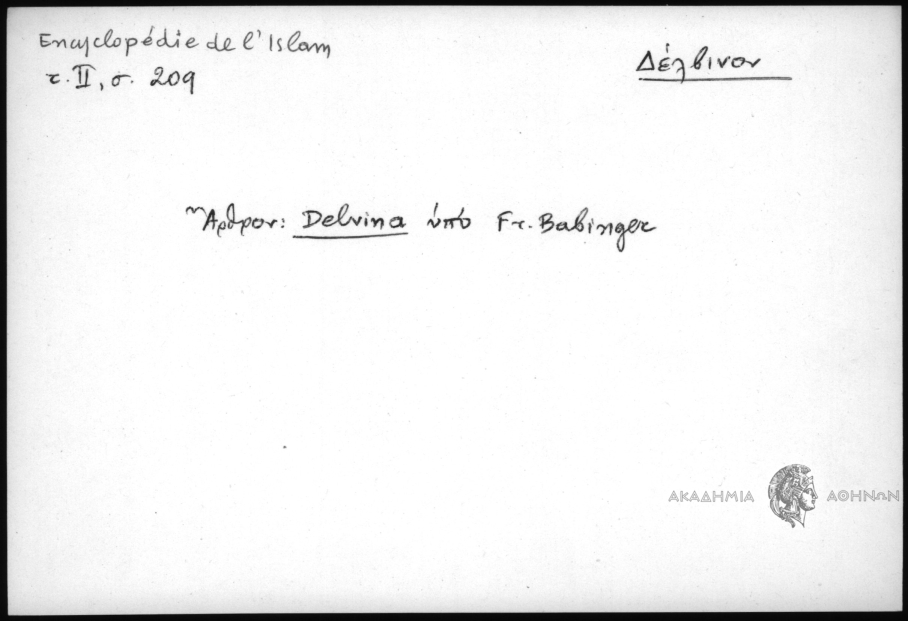 Encyclopédie de l'Islam
τ. II, σ. 209
Δέλβινον
Ἄρθρον: Delvina ὑπό Fr. Babinger
ΑΚΑΔΗΜΙΑ ΑΘΗΝΩΝ